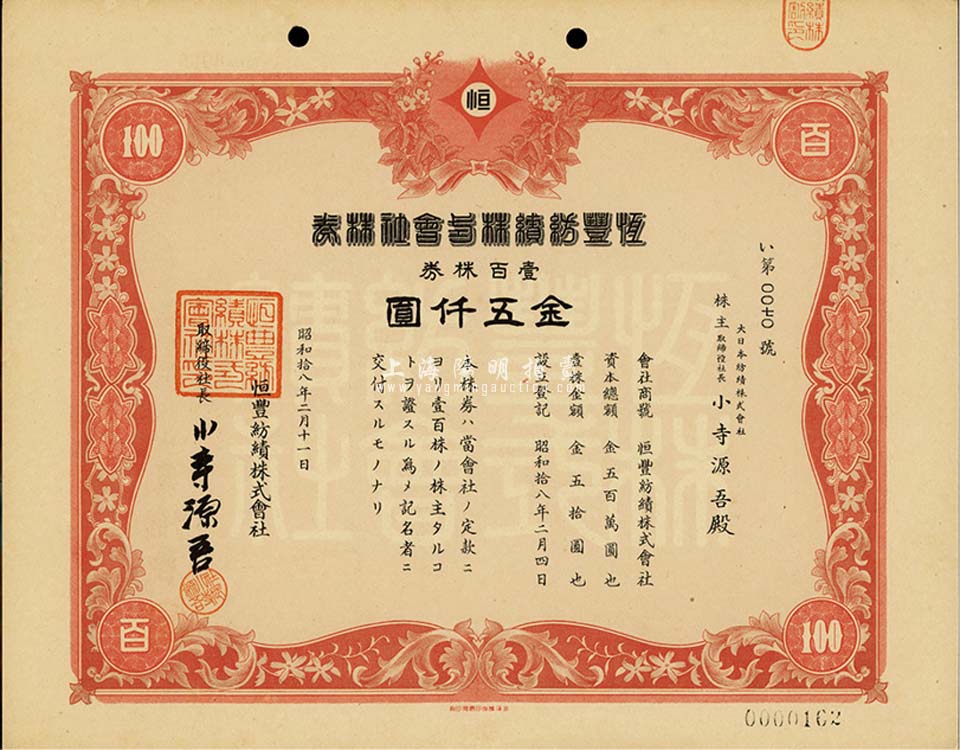 恒
100
百
恆豐紡績株式會社株券
壹百株券
金五仟圓
い第〇〇七〇號
大日本紡績株式會社
株主取締役社長 小寺源吾殿
會社商號 恒豐紡績株式會社
資本總額 金五百萬圓也
壹株金額 金五拾圓也
設立登記 昭和拾八年二月四日
本株券ハ當會社ノ定款ニ
ヨリ壹百株ノ株主タルコ
トヲ證スル爲メ記名者ニ
交付スルモノナリ
昭和拾八年二月十一日
恒豐紡績株式會社
取締役社長 小寺源吾
上海陽明拍賣
www.yangmingauction.com
百
100
0000162